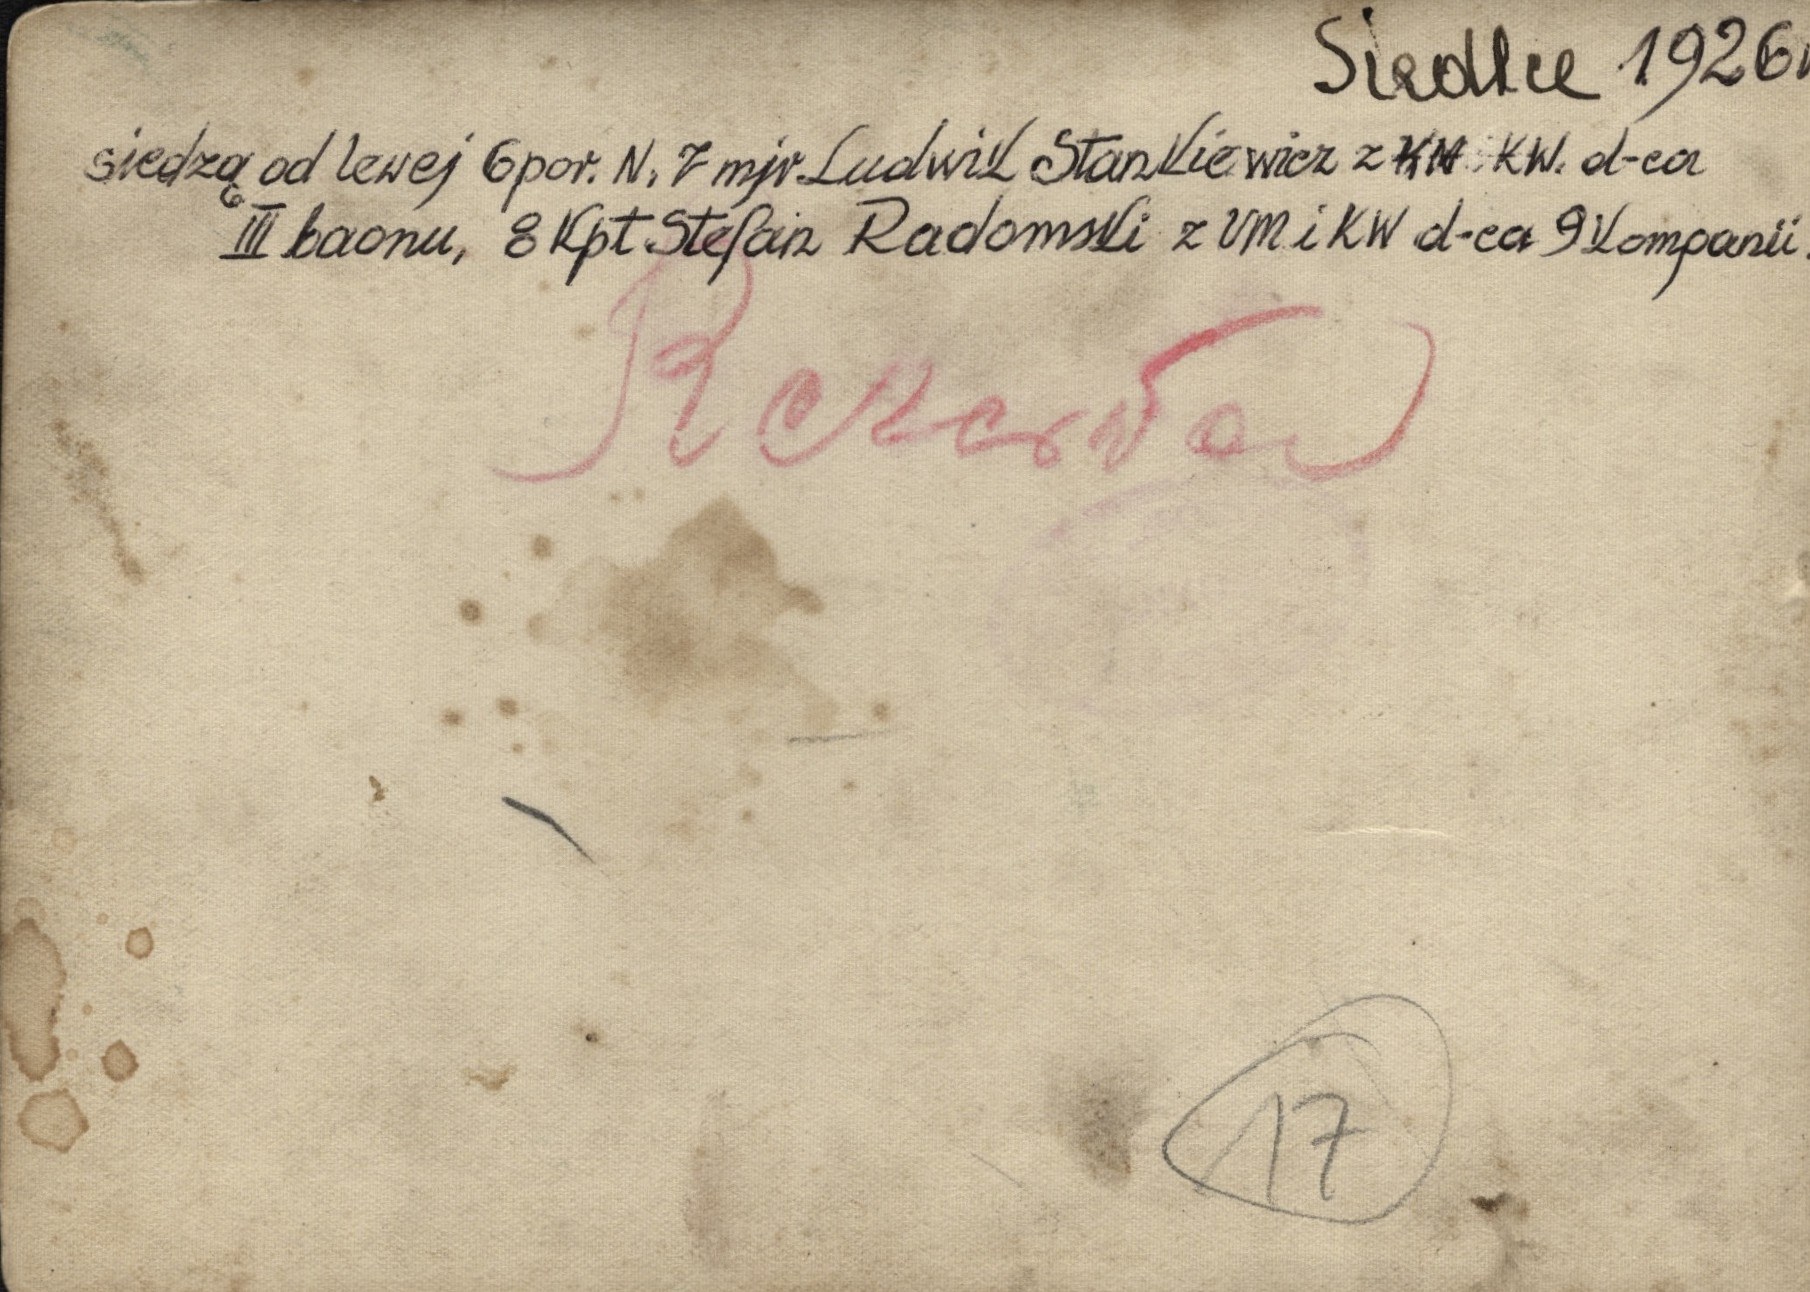 Siedlce 1926r
siedzą od lewej 6 por. N, 7 mjr Ludwik Stankiewicz z KN KW. d-ca
III baonu, 8 Kpt Stefan Radomski z VM i KW d-ca 9 Kompanii.
Rezerwa
17